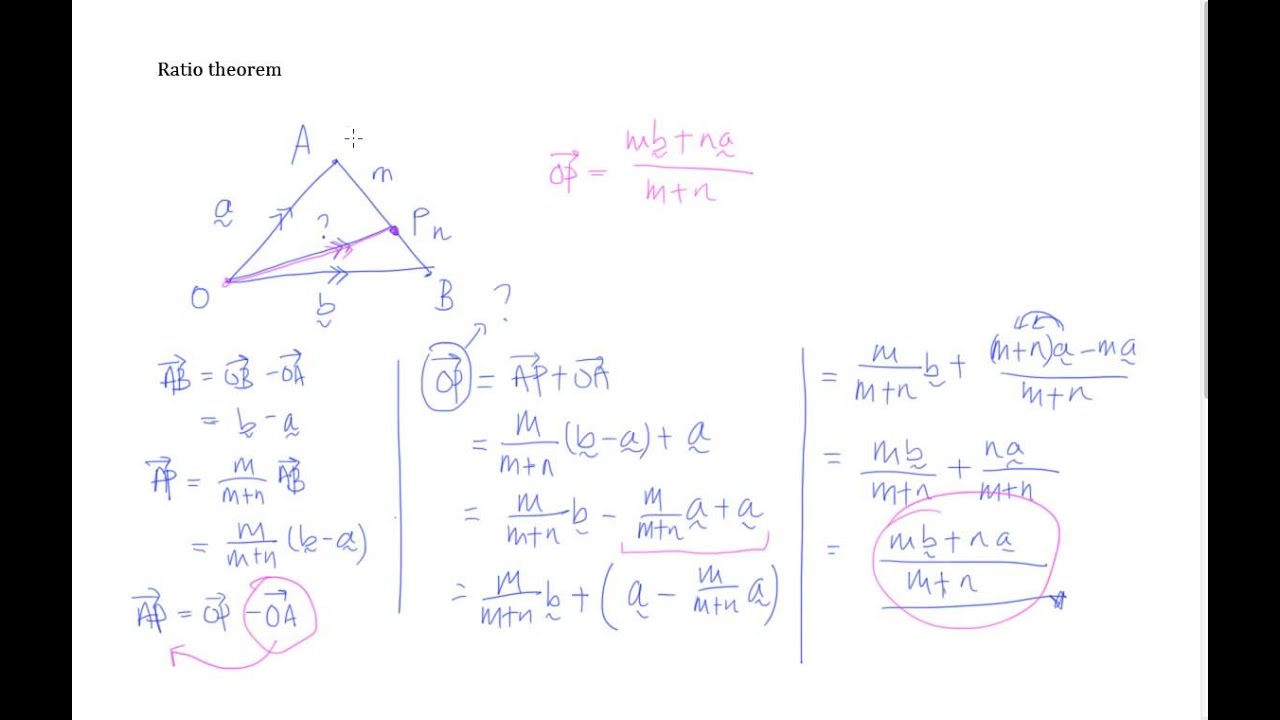 Ratio theorem
A
m
a̰
?
P n
O
b̰
B
?
OP⃗ = (mb̰ + na̰)/(m+n)
AB⃗ = OB⃗ - OA⃗
= b̰ - a̰
AP⃗ = m/(m+n) AB⃗
= m/(m+n) (b̰ - a̰)
AP⃗ = OP⃗ - OA⃗
OP⃗ = AP⃗ + OA⃗
= m/(m+n) (b̰ - a̰) + a̰
= m/(m+n) b̰ - m/(m+n) a̰ + a̰
= m/(m+n) b̰ + (a̰ - m/(m+n) a̰)
= m/(m+n) b̰ + ((m+n)a̰ - ma̰)/(m+n)
= mb̰/(m+n) + na̰/(m+n)
= (mb̰ + na̰)/(m+n)